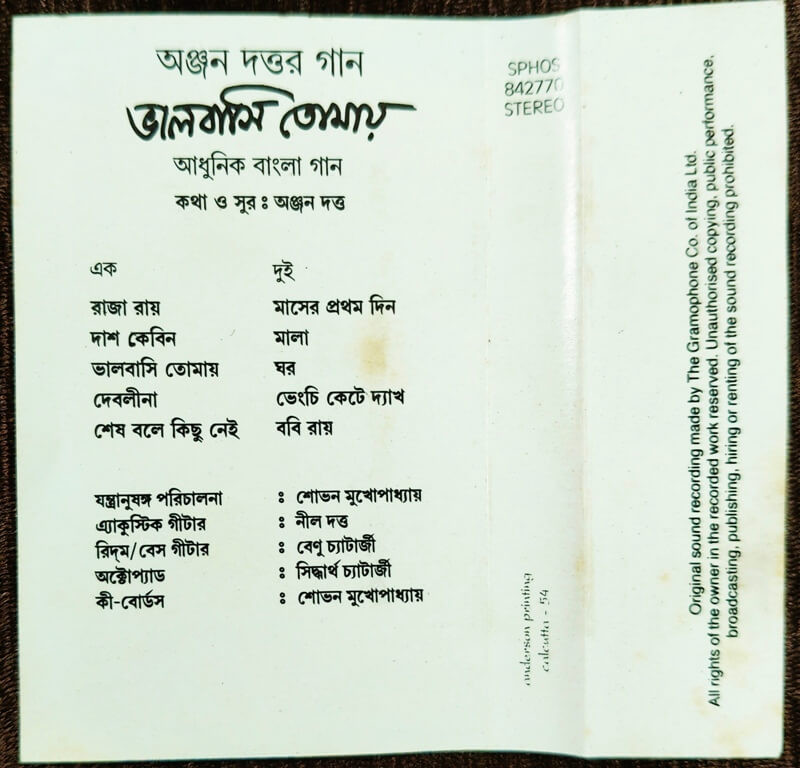 অঞ্জন দত্তর গান
ভালবাসি তোমায়
আধুনিক বাংলা গান
কথা ও সুর ঃ অঞ্জন দত্ত
এক
রাজা রায়
দাশ কেবিন
ভালবাসি তোমায়
দেবলীনা
শেষ বলে কিছু নেই
দুই
মাসের প্রথম দিন
মালা
ঘর
ভেংচি কেটে দ্যাখ
ববি রায়
যন্ত্রানুষঙ্গ পরিচালনা ঃ শোভন মুখোপাধ্যায়
এ্যাকুস্টিক গীটার ঃ নীল দত্ত
রিদ্‌ম/বেস গীটার ঃ বেণু চ্যাটার্জী
অক্টোপ্যাড ঃ সিদ্ধার্থ চ্যাটার্জী
কী-বোর্ডস ঃ শোভন মুখোপাধ্যায়
SPHOS
842770
STEREO
anderson printing
calcutta - 54
Original sound recording made by The Gramophone Co. of India Ltd.
All rights of the owner in the recorded work reserved. Unauthorised copying, public performance,
broadcasting, publishing, hiring or renting of the sound recording prohibited.